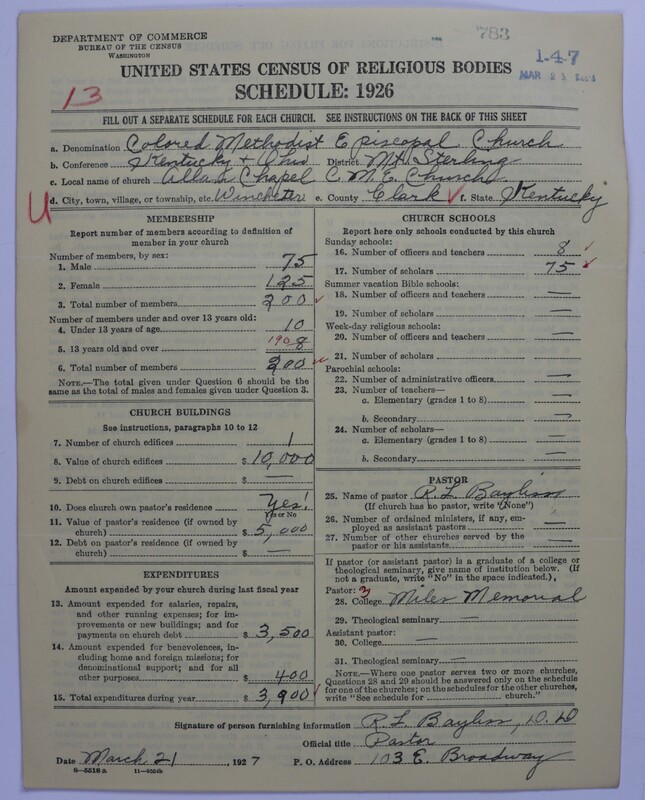 DEPARTMENT OF COMMERCE
BUREAU OF THE CENSUS
WASHINGTON
783
1-4-7
MAR 23
UNITED STATES CENSUS OF RELIGIOUS BODIES
SCHEDULE: 1926
13
FILL OUT A SEPARATE SCHEDULE FOR EACH CHURCH. SEE INSTRUCTIONS ON THE BACK OF THIS SHEET
a. Denomination Colored Methodist Episcopal Church
b. Conference Kentucky + Ohio District Mt. Sterling
c. Local name of church Allan Chapel C. M. E. Church
U d. City, town, village, or township, etc. Winchester e. County Clark f. State Kentucky
MEMBERSHIP
Report number of members according to definition of
member in your church
Number of members, by sex:
1. Male 75
2. Female 125
3. Total number of members 200
Number of members under and over 13 years old:
4. Under 13 years of age 10
5. 13 years old and over 190 8
6. Total number of members 200
NOTE.—The total given under Question 6 should be
same as the total of males and females given under Question 3.
CHURCH BUILDINGS
See instructions, paragraphs 10 to 12
7. Number of church edifices 1
8. Value of church edifices $ 10,000
9. Debt on church edifices $ —
10. Does church own pastor's residence Yes!
Yes or No
11. Value of pastor's residence (if owned by
church) $ 5,000
12. Debt on pastor's residence (if owned by
church) $ —
EXPENDITURES
Amount expended by your church during last fiscal year
13. Amount expended for salaries, repairs,
and other running expenses; for im-
provements or new buildings; and for
payments on church debt $ 3,500
14. Amount expended for benevolences, in-
cluding home and foreign missions; for
denominational support; and for all
other purposes $ 400
15. Total expenditures during year $ 3,900
CHURCH SCHOOLS
Report here only schools conducted by this church
Sunday schools:
16. Number of officers and teachers 8
17. Number of scholars 75
Summer vacation Bible schools:
18. Number of officers and teachers —
19. Number of scholars —
Week-day religious schools:
20. Number of officers and teachers —
21. Number of scholars —
Parochial schools:
22. Number of administrative officers —
23. Number of teachers—
a. Elementary (grades 1 to 8) —
b. Secondary —
24. Number of scholars—
a. Elementary (grades 1 to 8) —
b. Secondary —
PASTOR
25. Name of pastor R. L. Bayliss
(If church has no pastor, write "None")
26. Number of ordained ministers, if any, em-
ployed as assistant pastors —
27. Number of other churches served by the
pastor or his assistants —
If pastor (or assistant pastor) is a graduate of a college or
theological seminary, give name of institution below. (If
not a graduate, write "No" in the space indicated.)
Pastor: 3
28. College Miles Memorial
29. Theological seminary —
Assistant pastor:
30. College —
31. Theological seminary —
NOTE.—Where one pastor serves two or more churches,
Questions 28 and 29 should be answered only on the schedule
for one of the churches; on the schedules for the other churches,
write "See schedule for church."
Signature of person furnishing information R. L. Bayliss, D. D
Official title Pastor
Date March 21, 1927 P. O. Address 103 E. Broadway